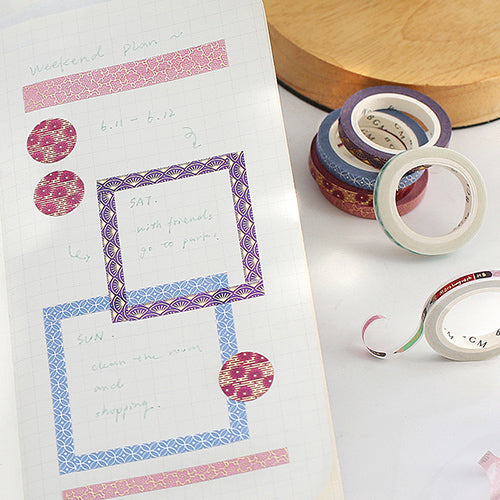 weekend plan ~
6.11 - 6.12
SAT.
with friends
go to
SUN.
clean the room
and
shopping.
BGM
GM